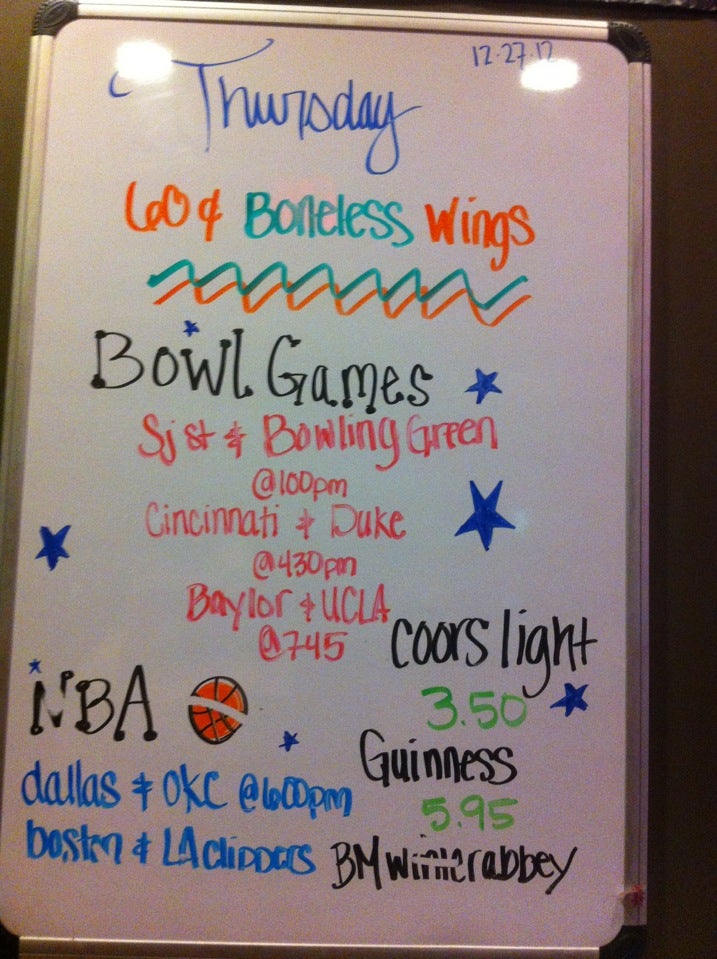 12.27.12
Thursday
60¢ Boneless Wings
Bowl Games
Sj st & Bowling Green
@100pm
Cincinnati & Duke
@430pm
Baylor & UCLA
@745
coors light
3.50
NBA
Guinness
5.95
dallas & OKC @600pm
boston & LA clippers
BM winter abbey